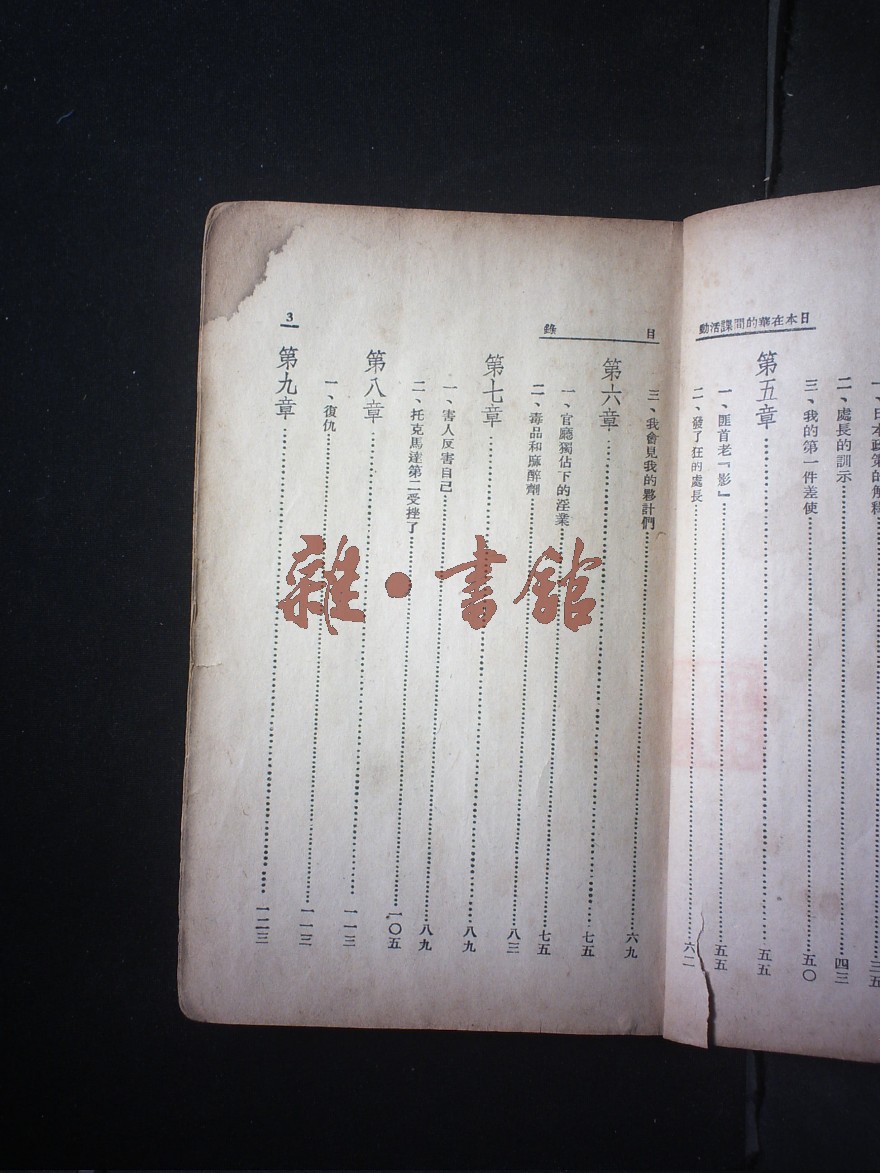 日本在華的間諜活動
一、日本政策的解釋……三五
二、處長的訓示……四三
三、我的第一件差使……五〇
第五章……五五
一、匪首老『影』……五五
二、發了狂的處長……六二
目錄
三、我會見我的夥計們……六九
第六章……七五
一、官廳獨佔下的淫業……七五
二、毒品和麻醉劑……八三
第七章……八九
一、害人反害自己……八九
二、托克馬達第二受挫了……一〇五
第八章……一一三
一、復仇……一一三
第九章……一二三
3
雜·書館